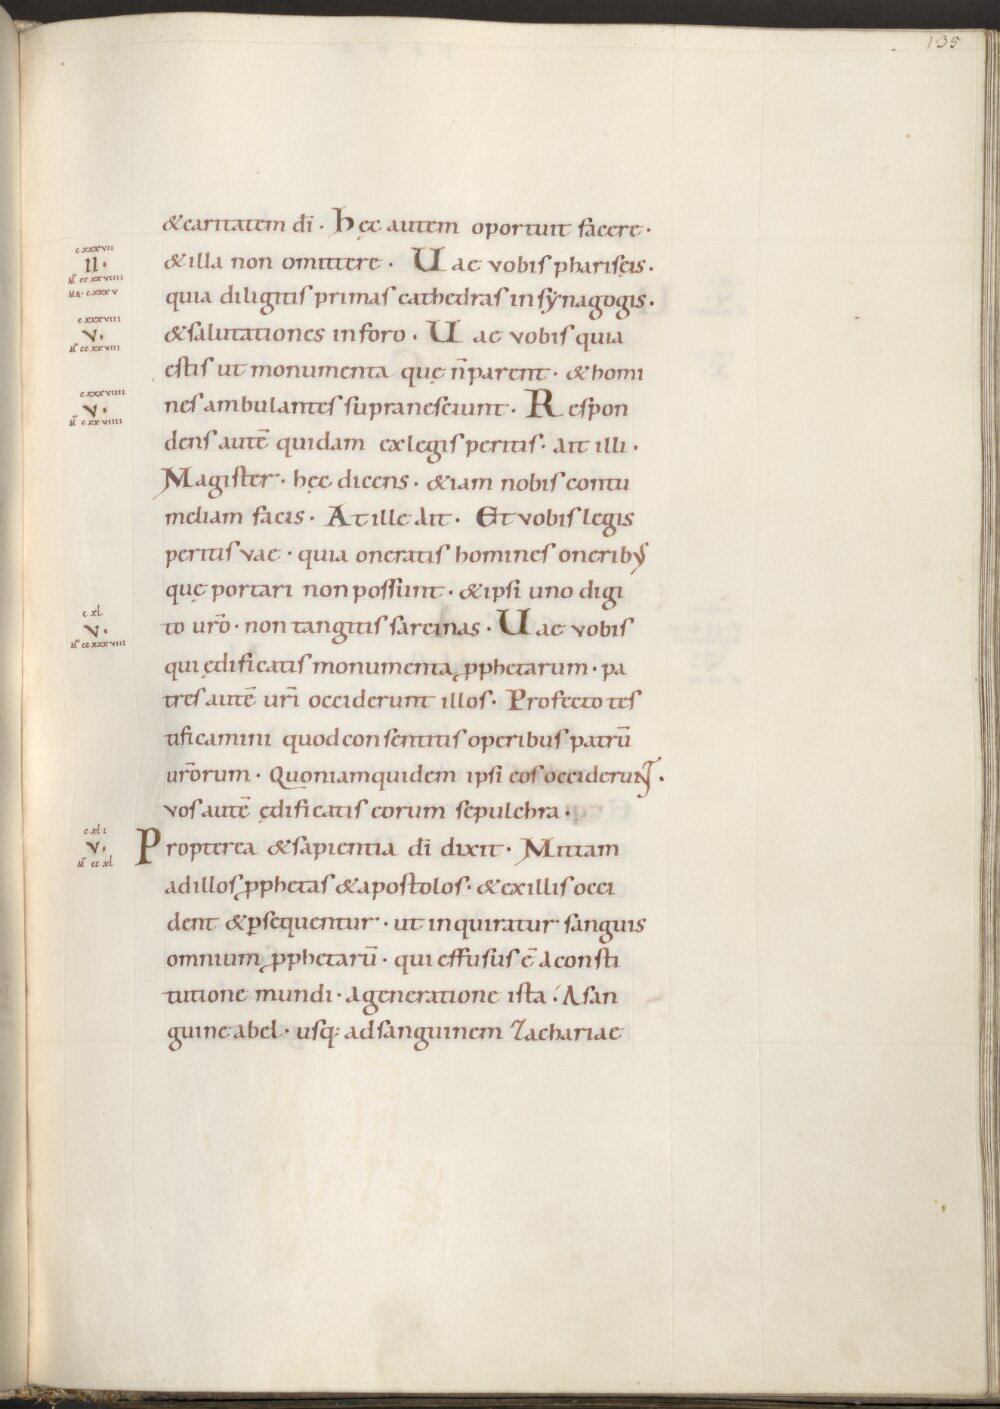 135
&caritatem dī · hęc autem oportuit facere ·
&illa non omittere · Uae vobis phariseis ·
quia diligitis primas cathedras in sẏnagogis ·
&salutationes in foro · Uae vobis quia
estis ut monumenta quę n̄ parent · & homi
nes ambulantes supra nesciunt · Respon
dens autē quidam ex legis peritis · ait illi ·
Magister · hęc dicens · &iam nobis contu
meliam facis · At ille ait · Et vobis legis
peritis vae · quia oneratis homines oneribꝰ
quę portari non possunt · &ipsi uno digi
to ur̄o · non tangitis sarcinas · Uae vobis
qui ędificatis monumenta ꝓphetarum · pa
tres autē ur̄i occiderunt illos · Profecto tes
tificamini quod consentitis operibus patrū
ur̄orum · Quoniam quidem ipsi eos occiderunt ·
vos autē ędificatis eorum sepulchra ·
Propterea &sapientia dī dixit · Mittam
ad illos ꝓphetas &apostolos · &ex illis occi
dent &ꝑsequentur · ut inquiratur sanguis
omnium ꝓphetarū · qui effusus ē a consti
tutione mundi · a generatione ista · A san
guine abel · usq; ad sanguinem Zachariae
cxxxvii
II ·
M̄ ccxxviiii
Ma · cxxxv
cxxxviii
v ·
M̄ ccxxviii
cxxxviiii
v ·
M̄ cxxviiii
cxl
v ·
M̄ ccxxxviiii
cxli
v ·
M̄ ccxl